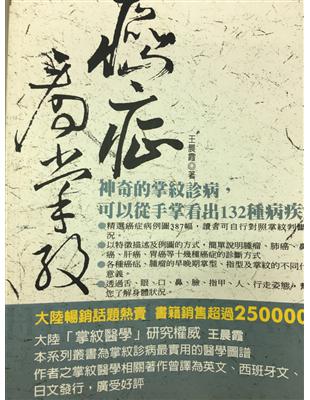 癌症
看掌紋
王晨霞◎著
神奇的掌紋診病，
可以從手掌看出132種病疾
●精選癌症病例圖387幅，讀者可自行對照掌紋判斷
況。
●以特徵描述及例圖的方式，簡單說明腫瘤、肺癌、鼻
癌、肝癌、胃癌等十幾種癌症的診斷方式
●各種癌症、腫瘤的早晚期掌型、指型及掌紋的不同代
意義。
●透過舌、眼、口、鼻、臉、指甲、人、行走姿態
您了解身體狀況。
大陸暢銷話題熱賣 書籍銷售超過250000
大陸「掌紋醫學」研究權威 王晨霞
本系列叢書為掌紋診病最實用的醫學圖譜
作者之掌紋醫學相關著作曾譯為英文、西班牙文、
日文發行，廣受好評